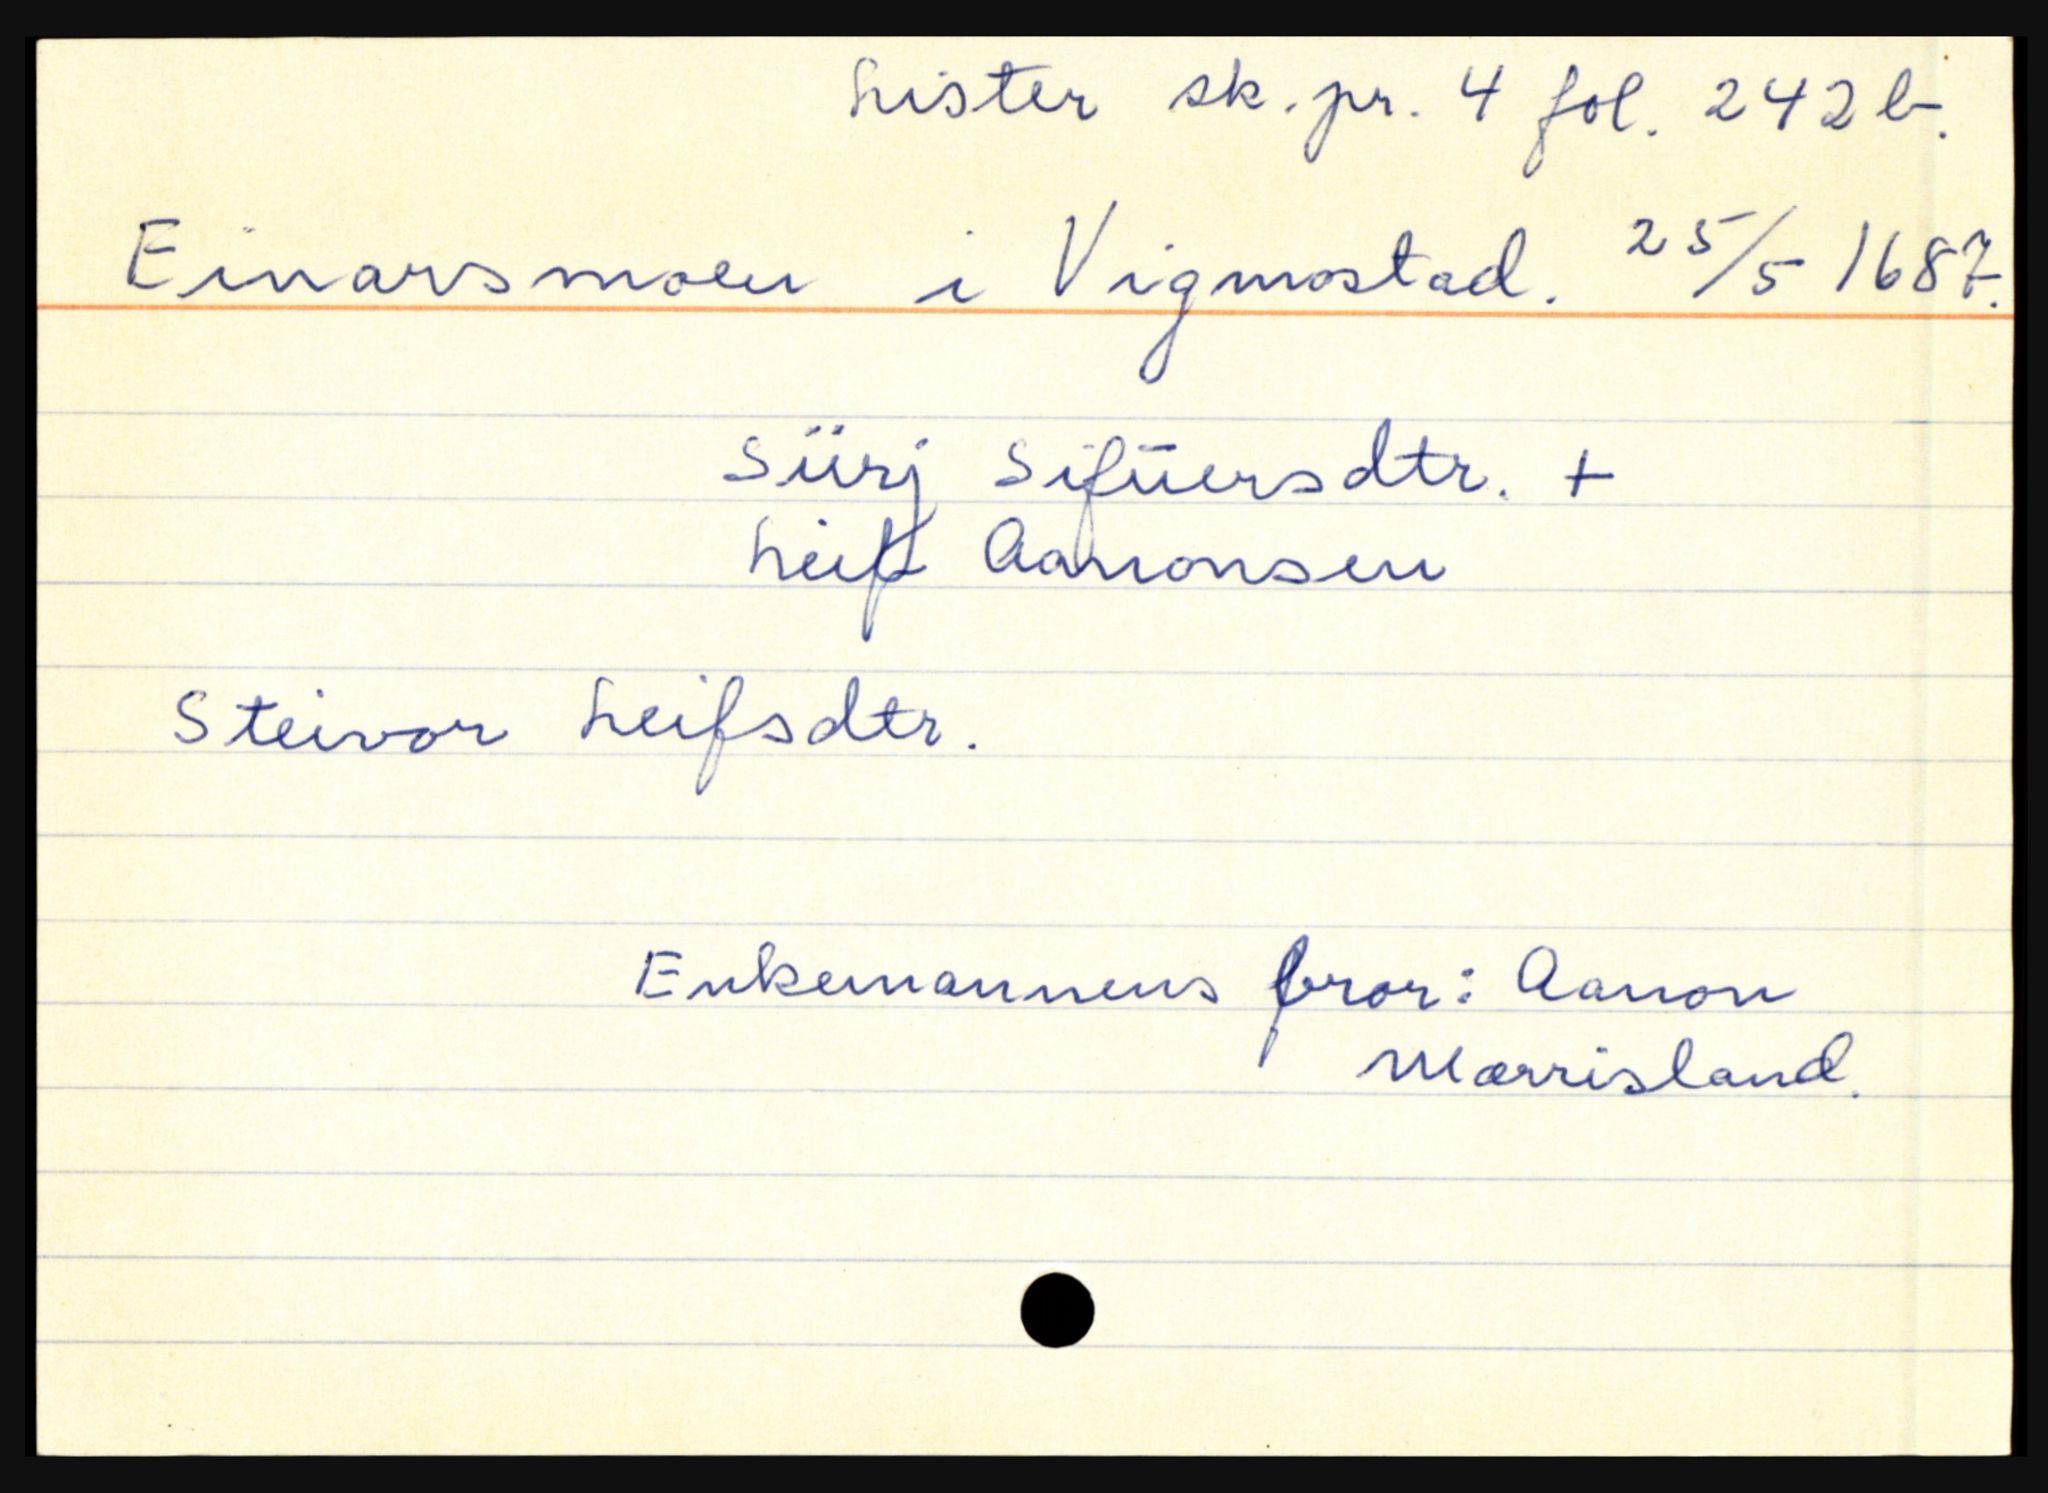 Lister sk.pr. 4 fol. 242 b.
Einarsmoen i Vigmostad. 25/5 1687.
Siirj Sifüersdtr. +
Leif Aanonsen
Steivor Leifsdtr.
Enkemannens bror: Aanon
Mærrisland.